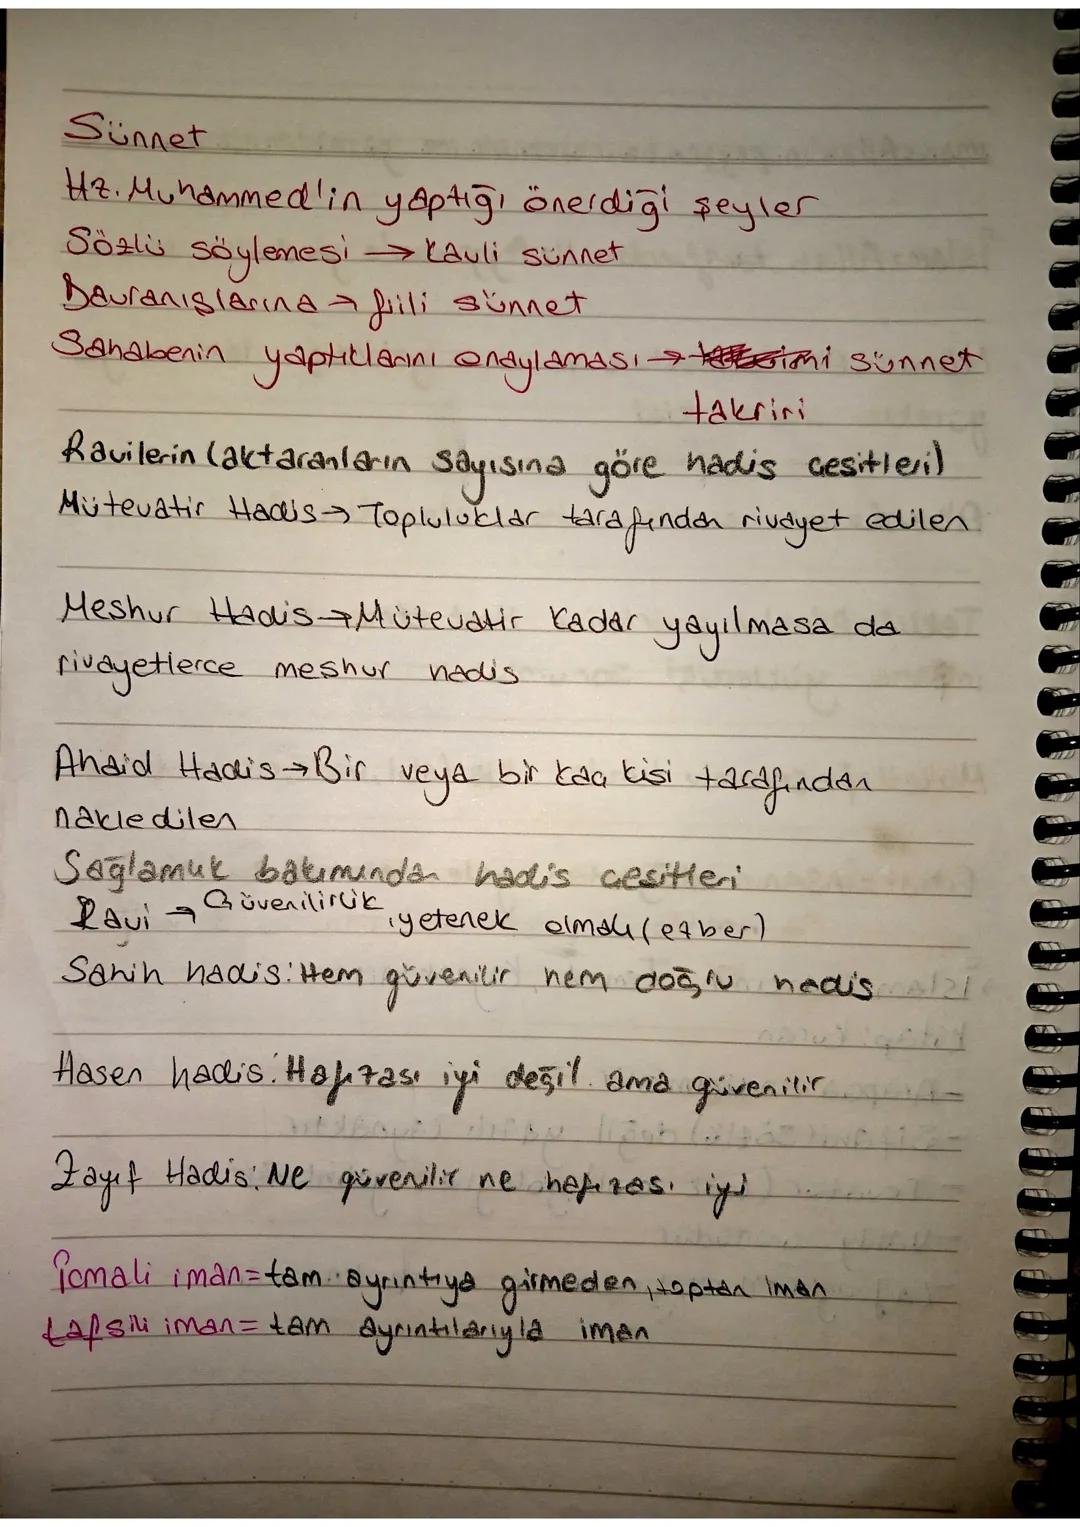 Sünnet
Hz. Muhammed'in yaptığı önerdiği şeyler
Sözlü söylemesi → kavli sünnet
Davranışlarına → fiili sünnet
Sahabenin yaptıklarını onaylaması → sünnet
takriri
Ravilerin (aktaranların sayısına göre hadis cesitleri)
Mütevatir Hadis → Topluluklar tarafından rivayet edilen
Meshur Hadis → Mütevatir kadar yayılmasa da
rivayetlerce meshur hadis
Ahaid Hadis → Bir veya bir kaç kisi tarafından
nakledilen
Sağlamlık bakımından hadis cesitleri
Ravi → Güvenilirlik, yetenek olmalı (ezber)
Sahih hadis: Hem güvenilir hem doğru hadis
Hasen hadis: Hafızası iyi değil ama güvenilir
Zayıf Hadis: Ne güvenilir ne hafızası iyi
İcmali iman = tam ayrıntıya girmeden, toptan iman
tafsili iman = tam ayrıntılarıyla iman